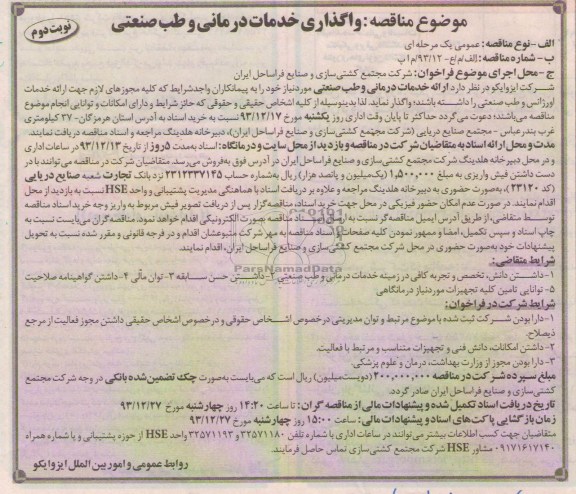 موضوع مناقصه: واگذاری خدمات درمانی و طب صنعتی
نوبت دوم
الف- نوع مناقصه: عمومی یک مرحله ای
ب- شماره مناقصه: الف/م/ع-۹۳/۱۲/م ا ب
ج- محل اجرای موضوع فراخوان: شرکت مجتمع کشتی سازی و صنایع فراساحل ایران
شرکت ایزوایکو در نظر دارد ارائه خدمات درمانی و طب صنعتی موردنیاز خود را به پیمانکاران واجد شرایط که کلیه مجوزهای لازم جهت ارائه خدمات
اورژانس و طب صنعتی را داشته باشند؛ واگذار نماید. لذا بدینوسیله از کلیه اشخاص حقیقی و حقوقی که حائز شرایط و دارای امکانات و توانایی انجام موضوع
مناقصه می‌باشند؛ دعوت می‌گردد حداکثر تا پایان وقت اداری روز یکشنبه مورخ ۹۳/۱۲/۱۷ نسبت به خرید اسناد به آدرس استان هرمزگان- ۳۷ کیلومتری
غرب بندرعباس- مجتمع صنایع دریایی (شرکت مجتمع کشتی سازی و صنایع فراساحل ایران)، دبیرخانه هلدینگ مراجعه و اسناد مناقصه دریافت نمایند.
مدت و محل ارائه اسناد به متقاضیان شرکت در مناقصه و بازدید از محل سایت و درمانگاه: اسناد به مدت ۵ روز از تاریخ ۹۳/۱۲/۱۳ در ساعات اداری
و در محل دبیرخانه هلدینگ شرکت مجتمع کشتی سازی و صنایع فراساحل ایران در آدرس فوق به‌فروش می‌رسد. متقاضیان شرکت در مناقصه می‌توانند با در
دست داشتن فیش واریزی به مبلغ ۱,۵۰۰,۰۰۰ (یک‌میلیون و پانصد هزار) ریال به‌شماره حساب ۲۳۱۲۳۳۷۱۴۵ نزد بانک تجارت شعبه صنایع دریایی
(کد ۲۳۱۲۰)، به‌صورت حضوری به دبیرخانه هلدینگ مراجعه و علاوه بر دریافت اسناد با هماهنگی مدیریت پشتیبانی و واحد HSE نسبت به بازدید از محل
اقدام نمایند. در صورت عدم امکان حضور فیزیکی در محل جهت خرید اسناد، مناقصه‌گزار پس از دریافت تصویر فیش مربوط به واریز وجه خرید اسناد مناقصه
توسط متقاضی، از طریق آدرس ایمیل مناقصه‌گر نسبت به ارسال اسناد مناقصه بصورت الکترونیکی اقدام خواهد نمود. مناقصه‌گران می‌بایست نسبت به
چاپ اسناد و سپس تکمیل، امضا و ممهور نمودن کلیه صفحات اسناد مناقصه به مهر شرکت متبوعشان اقدام و در فرجه قانونی و مقرر شده نسبت به تحویل
پیشنهادات خود به‌صورت حضوری در محل شرکت مجتمع کشتی سازی و صنایع فراساحل ایران، اقدام نمایند.
شرایط متقاضی:
۱- داشتن دانش، تخصص و تجربه کافی در زمینه خدمات درمانی و طب صنعتی ۲- داشتن حسن سابقه ۳- توان مالی ۴- داشتن گواهینامه صلاحیت
۵- توانایی تامین کلیه تجهیزات موردنیاز درمانگاهی
شرایط شرکت در فراخوان:
۱- دارا بودن شرکت ثبت شده با موضوع مرتبط و توان مدیریتی درخصوص اشخاص حقوقی و درخصوص اشخاص حقیقی داشتن مجوز فعالیت از مرجع
ذیصلاح.
۲- داشتن امکانات، دانش فنی و تجهیزات متناسب و مرتبط با فعالیت.
۳- دارا بودن مجوز از وزارت بهداشت، درمان و علوم پزشکی.
مبلغ سپرده شرکت در مناقصه ۲۰۰,۰۰۰,۰۰۰ (دویست‌میلیون) ریال است که می‌بایست به‌صورت چک تضمین شده بانکی در وجه شرکت مجتمع
کشتی سازی و صنایع فراساحل ایران صادر گردد.
تاریخ دریافت اسناد تکمیل شده و پیشنهادات مالی از مناقصه گران: تا ساعت ۱۴:۲۰ روز چهارشنبه مورخ ۹۳/۱۲/۲۷
زمان بازگشایی پاکت‌های اسناد و پیشنهادات مالی: ساعت ۱۵:۰۰ روز چهارشنبه مورخ ۹۳/۱۲/۲۷
متقاضیان جهت کسب اطلاعات بیشتر می‌توانند در ساعات اداری با شماره تلفن ۳۲۵۷۱۱۸۰ و ۳۲۵۷۱۱۹۳ واحد HSE از حوزه پشتیبانی و یا شماره همراه
۰۹۱۷۱۶۱۷۱۴۰ مشاور HSE شرکت مجتمع کشتی سازی تماس حاصل فرمایند.
روابط عمومی و امور بین الملل ایزوایکو
ParsNamadData